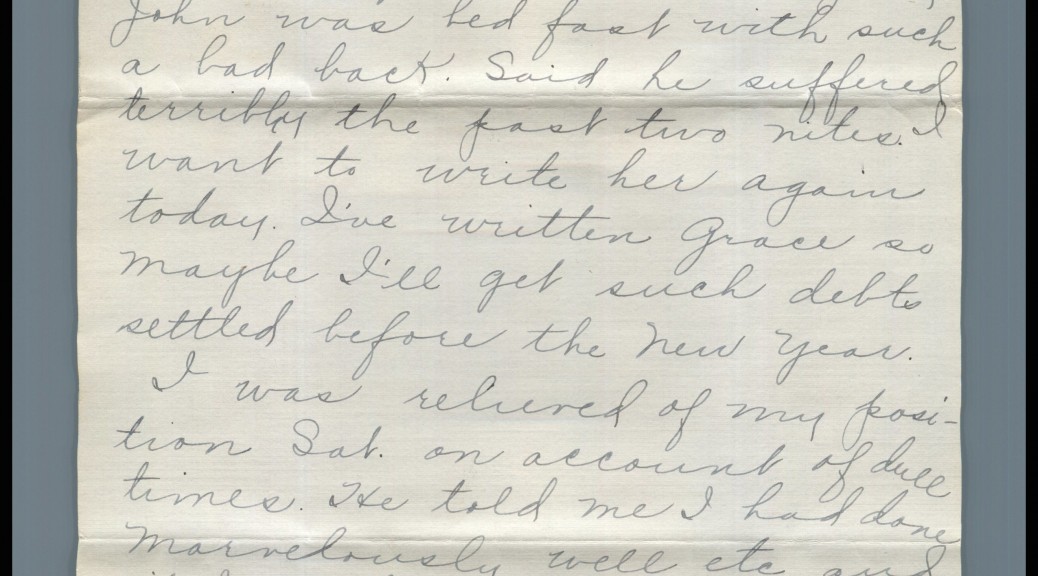 John was bed fast with such
a bad back. Said he suffered
terribly the past two nites. I
want to write her again
today. I've written Grace so
maybe I'll get such debts
settled before the New Year.
I was relieved of my posi-
tion Sat. on account of dull
times. He told me I had done
marvelously well etc and